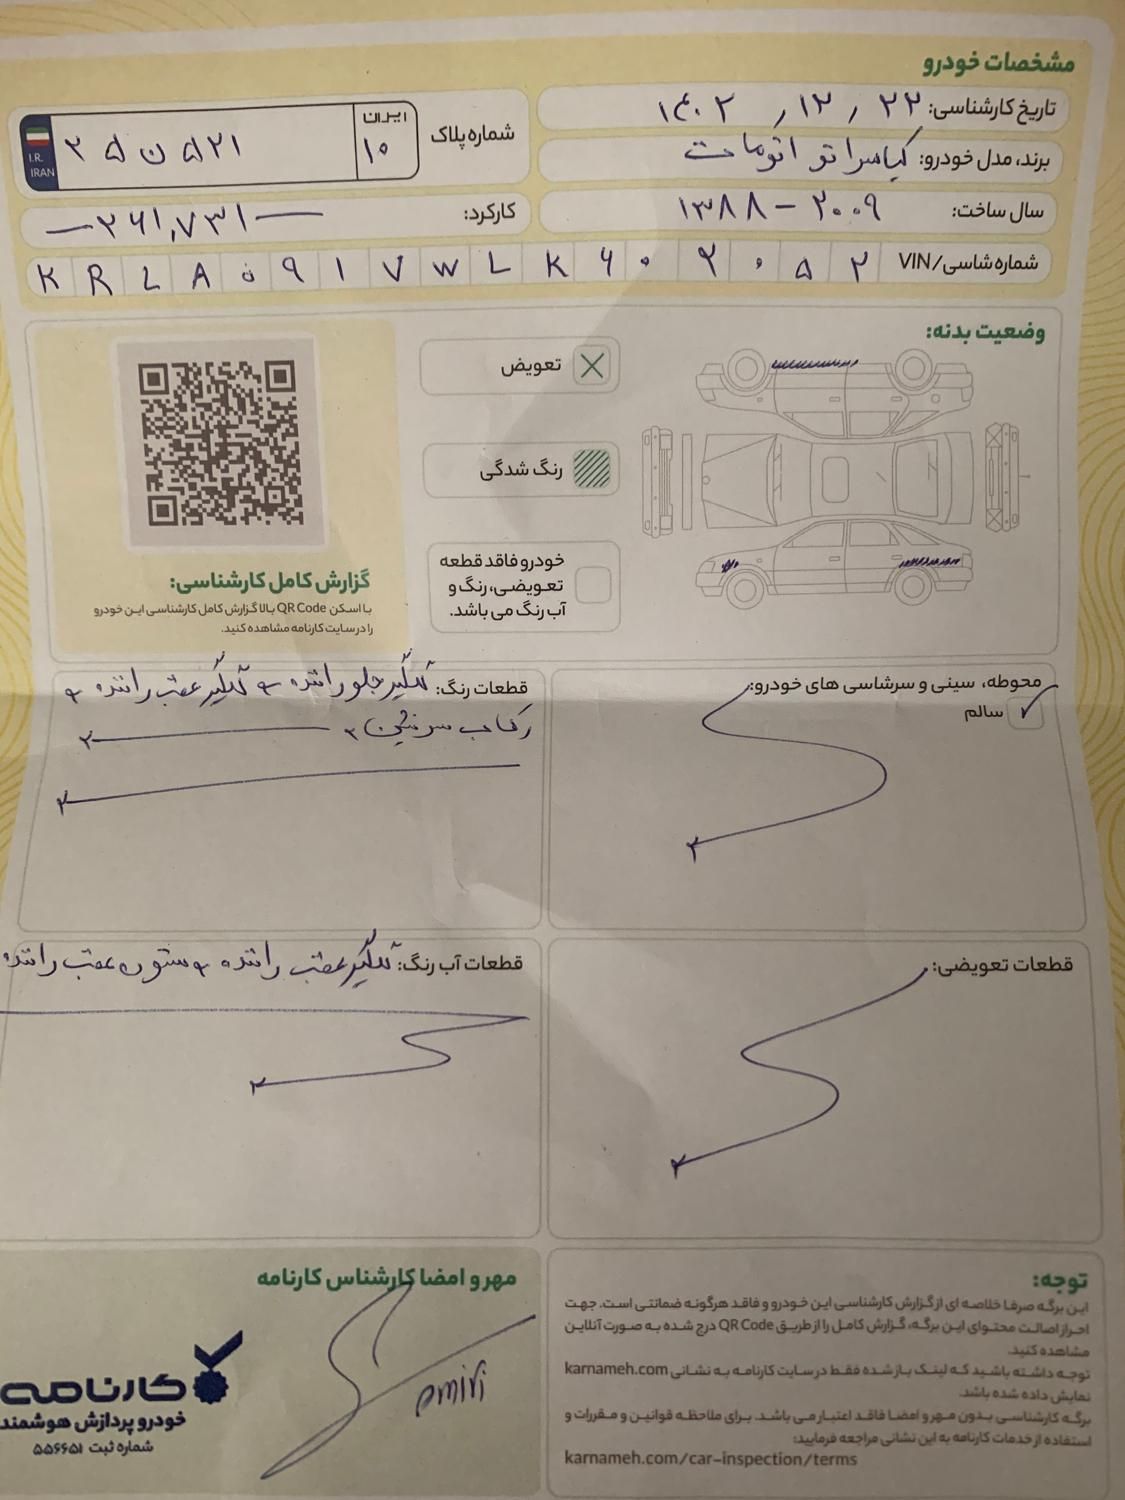 مشخصات خودرو
تاریخ کارشناسی: ۱۴۰۲ / ۱۲ / ۲۲
برند، مدل خودرو: کیا سراتو اتومات
سال ساخت: ۱۳۸۸ – ۲۰۰۹
شماره پلاک
ایران
۱۰
۲۵ ن ۵۲۱
I.R.
IRAN
کارکرد: ۲۶۱,۷۳۱
شماره شاسی/VIN
K R L A ۵ ۹ ۱ ۷ W L K ۶ ۰ ۲ ۰ ۵ ۲
وضعیت بدنه:
تعویض
رنگ شدگی
خودرو فاقد قطعه
تعویضی، رنگ و
آب رنگ می باشد.
گزارش کامل کارشناسی:
با اسکن QR Code بالا گزارش کامل کارشناسی این خودرو
را در سایت کارنامه مشاهده کنید.
محوطه، سینی و سرشاسی های خودرو:
سالم
قطعات رنگ: گلگیر جلو راننده و گلگیر عقب راننده و
رکاب سرنشین
قطعات تعویضی:
قطعات آب رنگ: گلگیر عقب راننده و ستون عقب راننده
توجه:
این برگه صرفا خلاصه ای از گزارش کارشناسی این خودرو و فاقد هرگونه ضمانتی است. جهت
احراز اصالت محتوای این برگه، گزارش کامل را از طریق QR Code درج شده به صورت آنلاین
مشاهده کنید.
توجه داشته باشید که لینک باز شده فقط در سایت کارنامه به نشانی karnameh.com
نمایش داده شده باشد.
برگه کارشناسی بدون مهر و امضا فاقد اعتبار می باشد. برای ملاحظه قوانین و مقررات و
استفاده از خدمات کارنامه به این نشانی مراجعه فرمایید:
karnameh.com/car-inspection/terms
مهر و امضا کارشناس کارنامه
amiri
کارنامه
خودرو پردازش هوشمند
شماره ثبت ۵۵۶۶۵۱